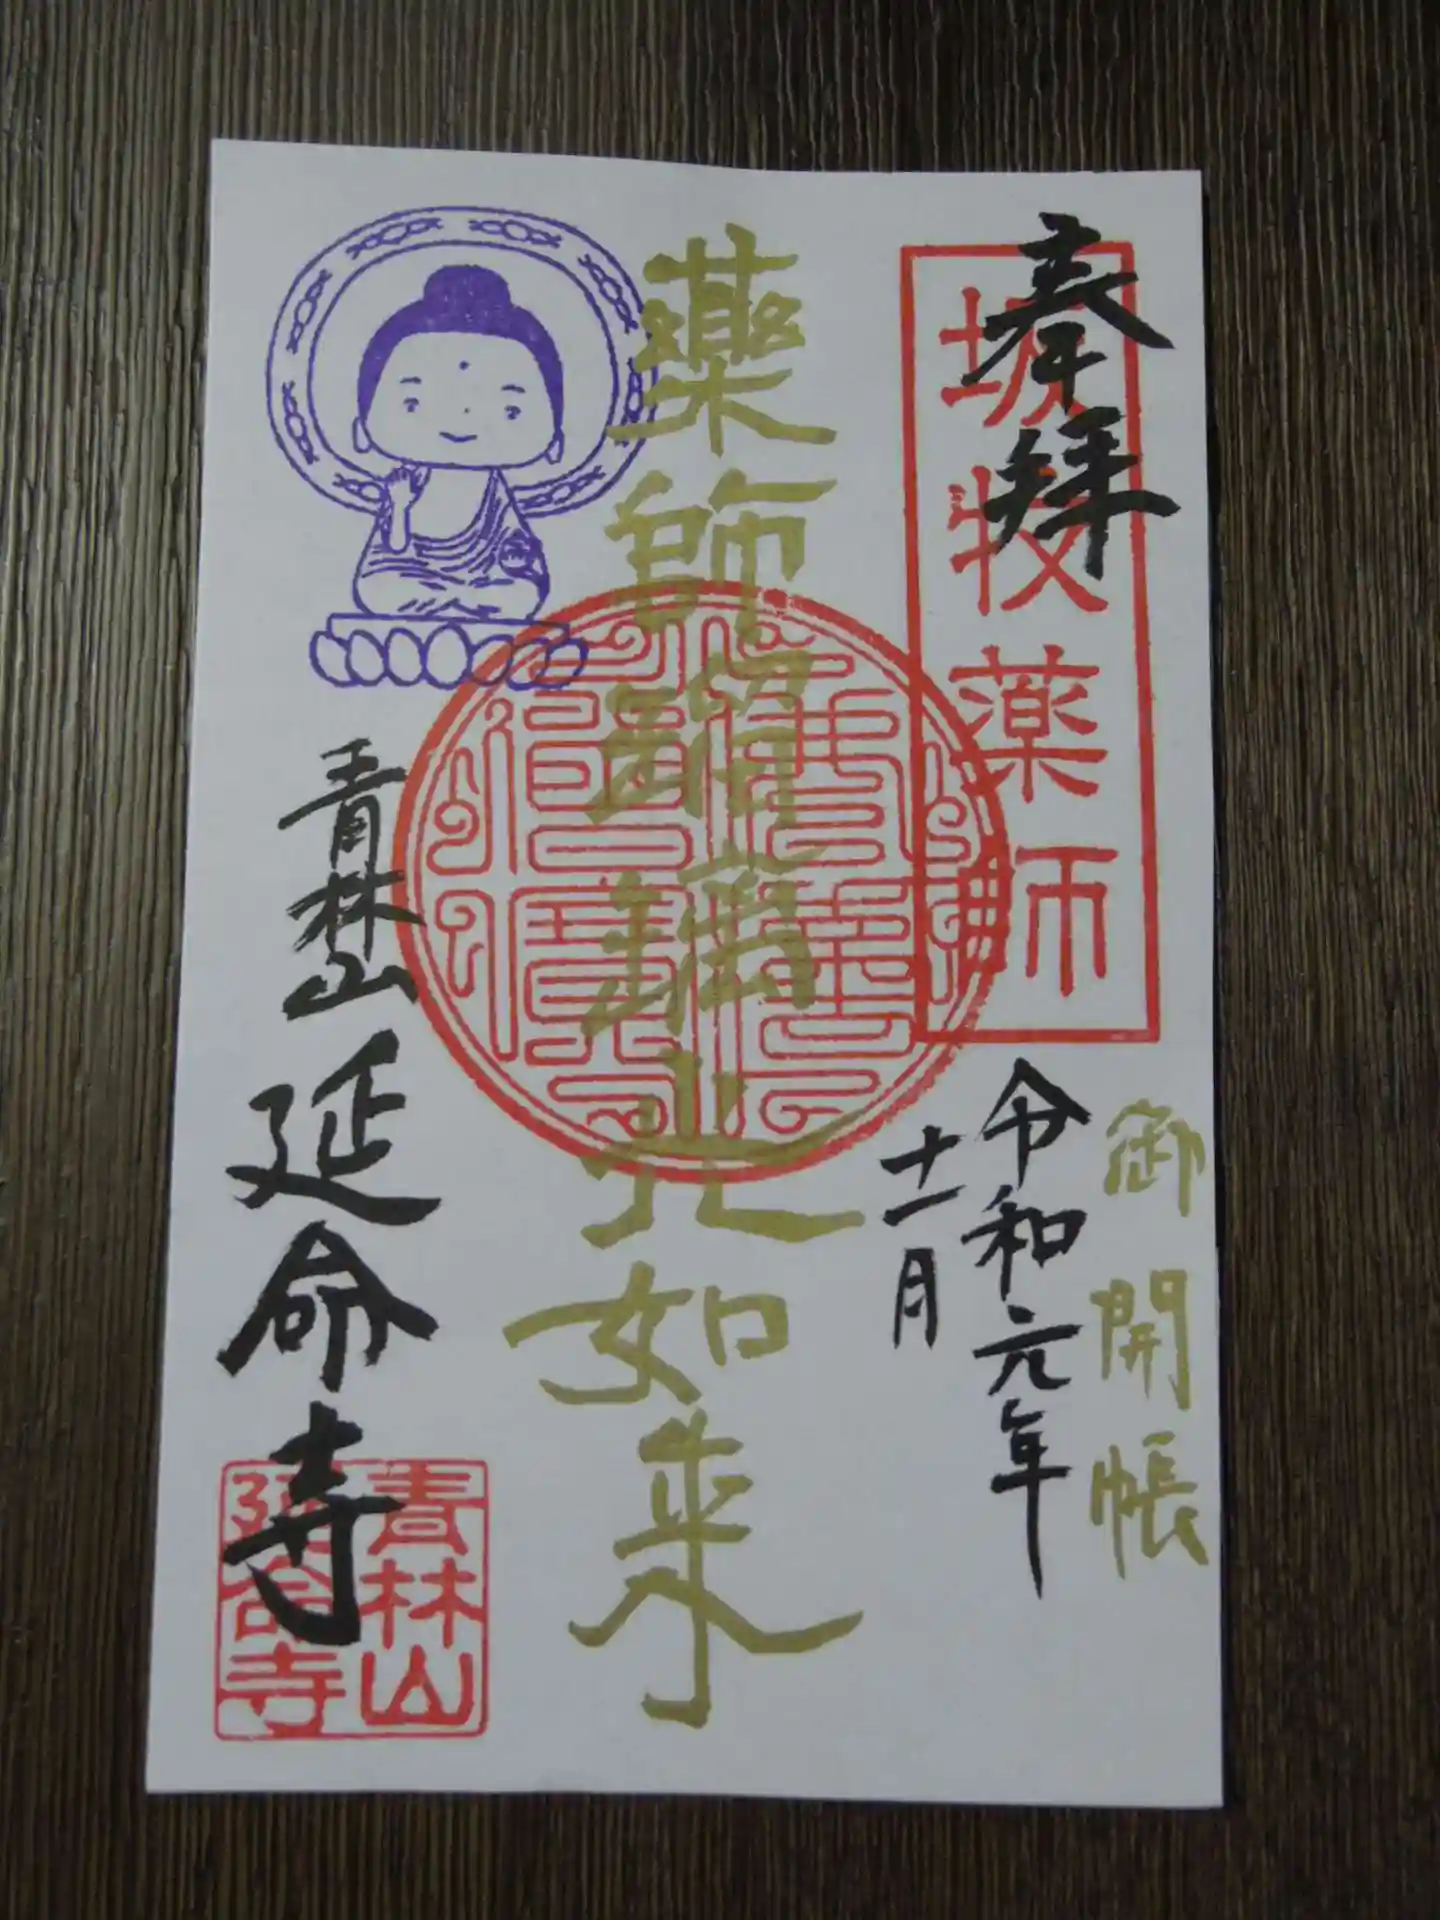 奉拝
牧薬師
御開帳
令和元年
十一月
薬師瑠璃光如来
青林山
延命寺
青林山
延命寺